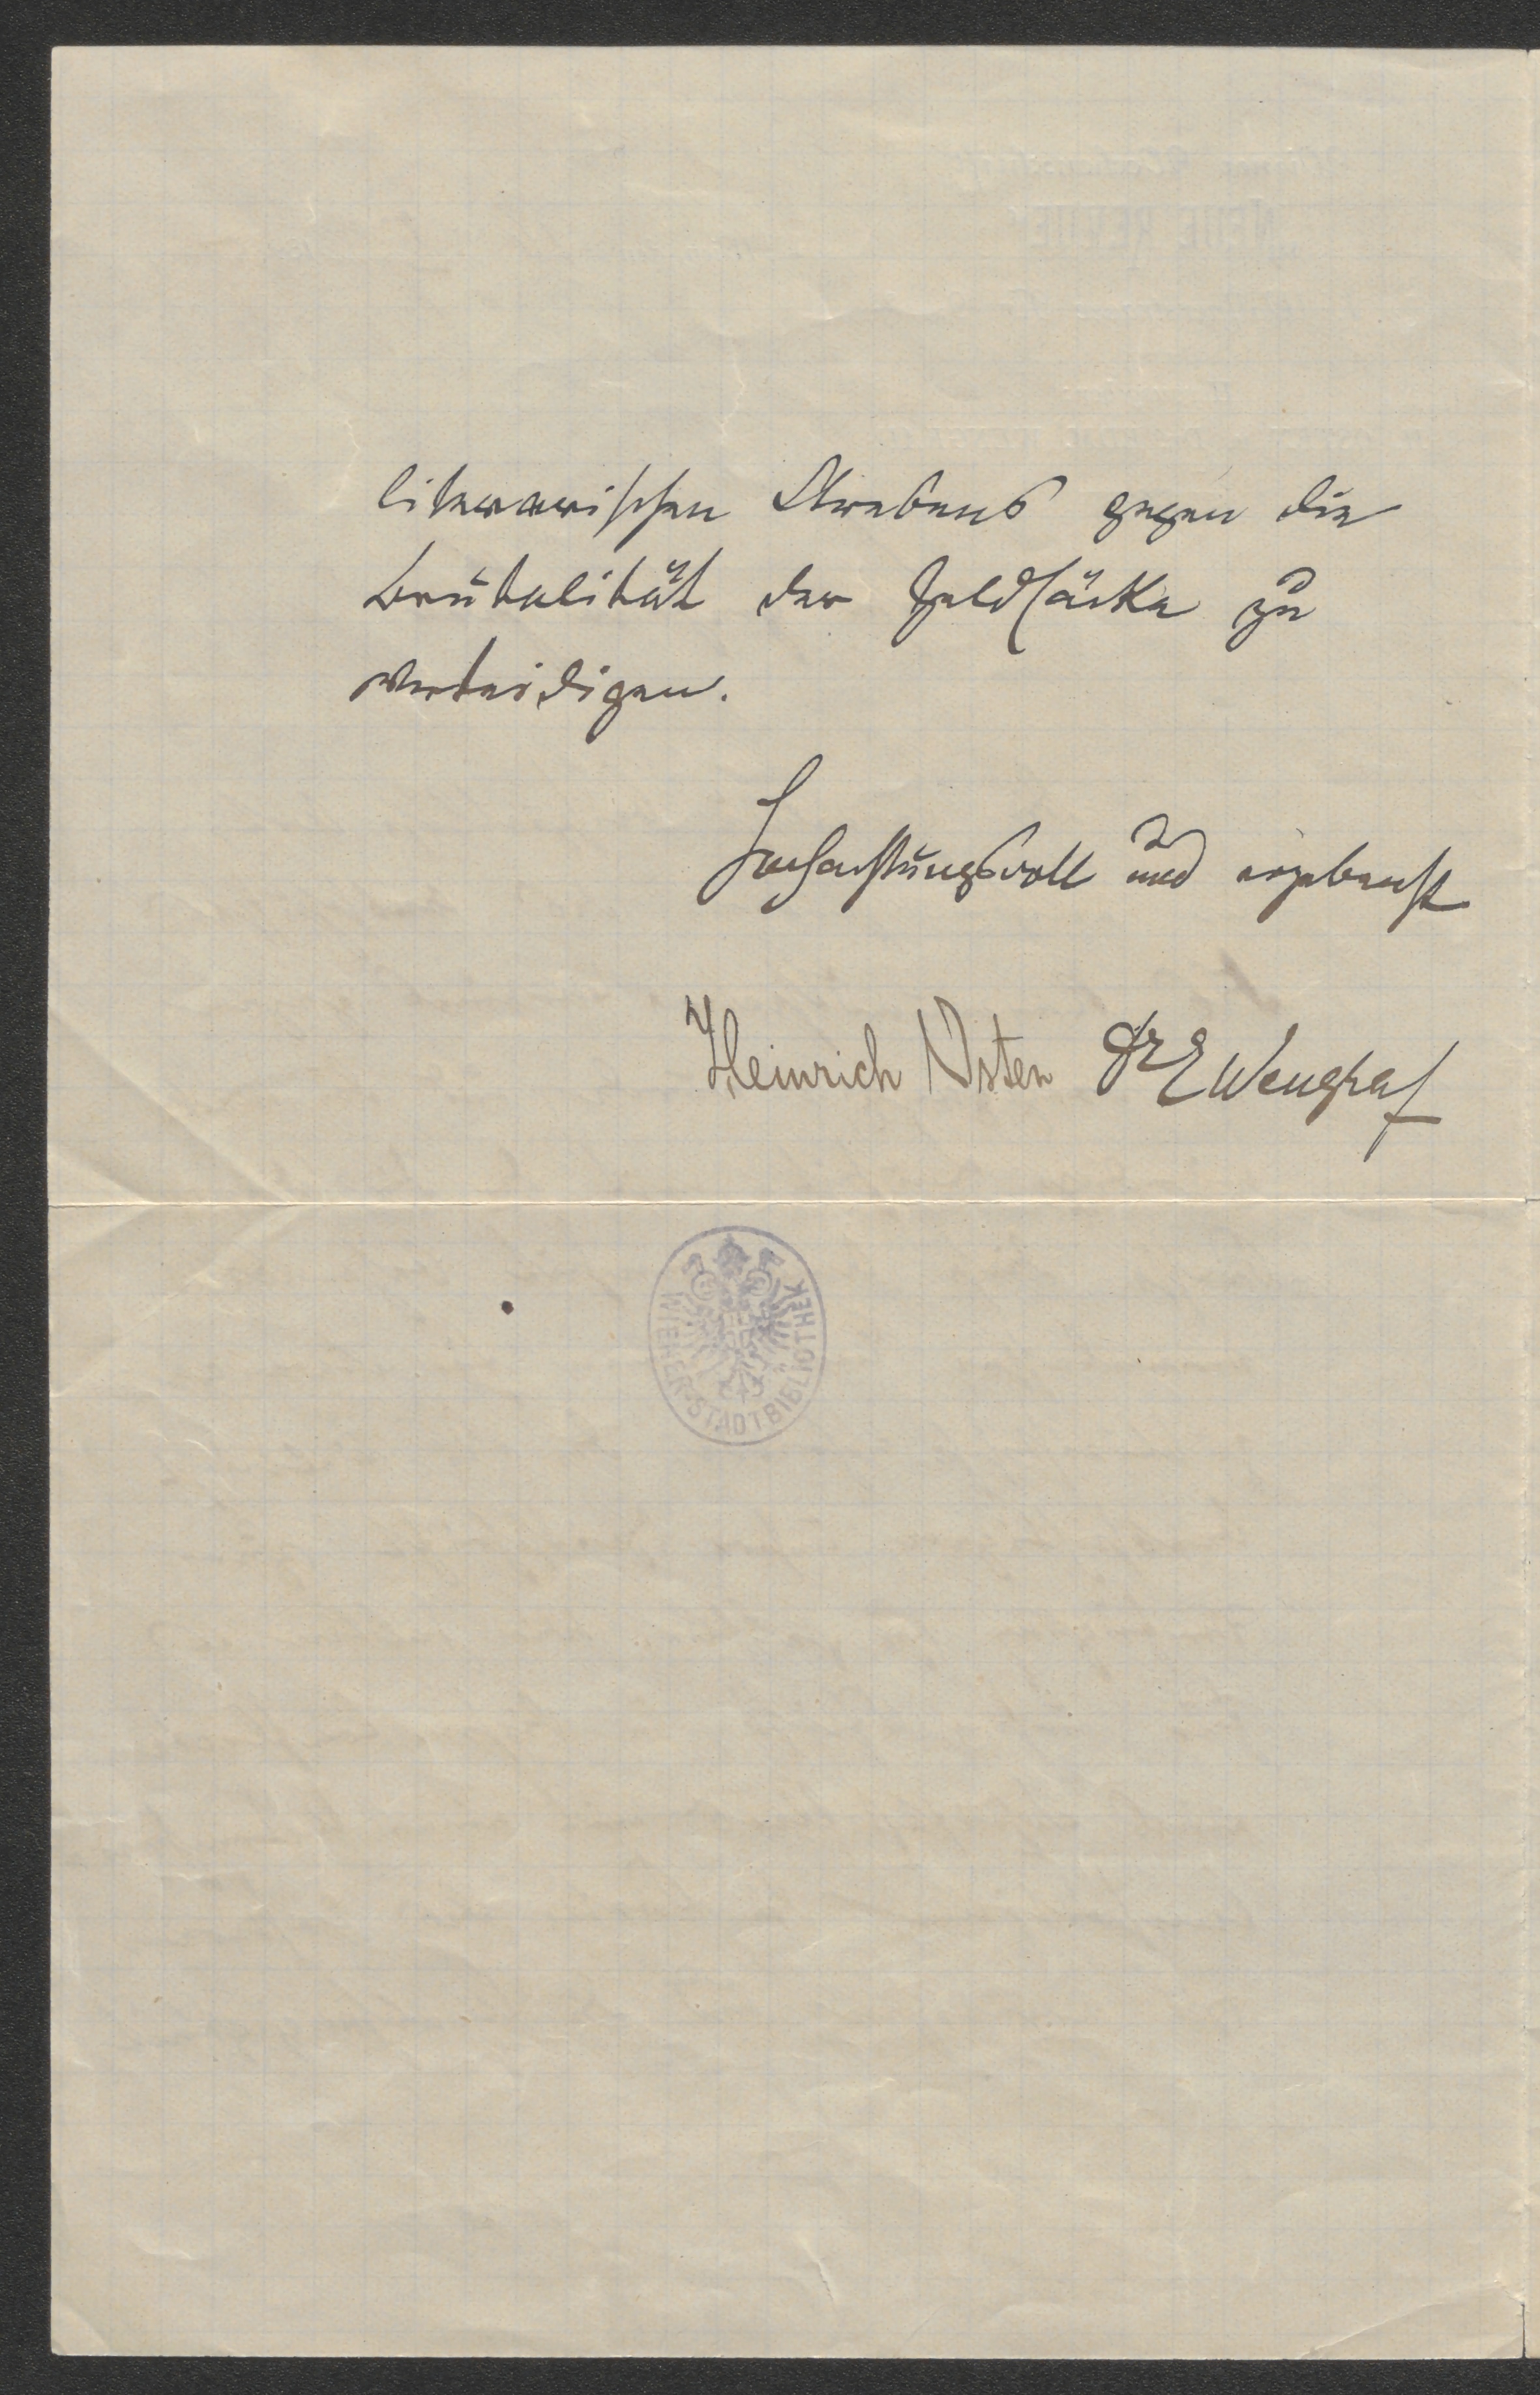 literarischen Strebens gegen die
Brutalität der Geldsäcke zu
verteidigen.
Hochachtungsvoll und ergebenst
Heinrich Osten Dr E Wengraf
WIENER-STADTBIBLIOTHEK